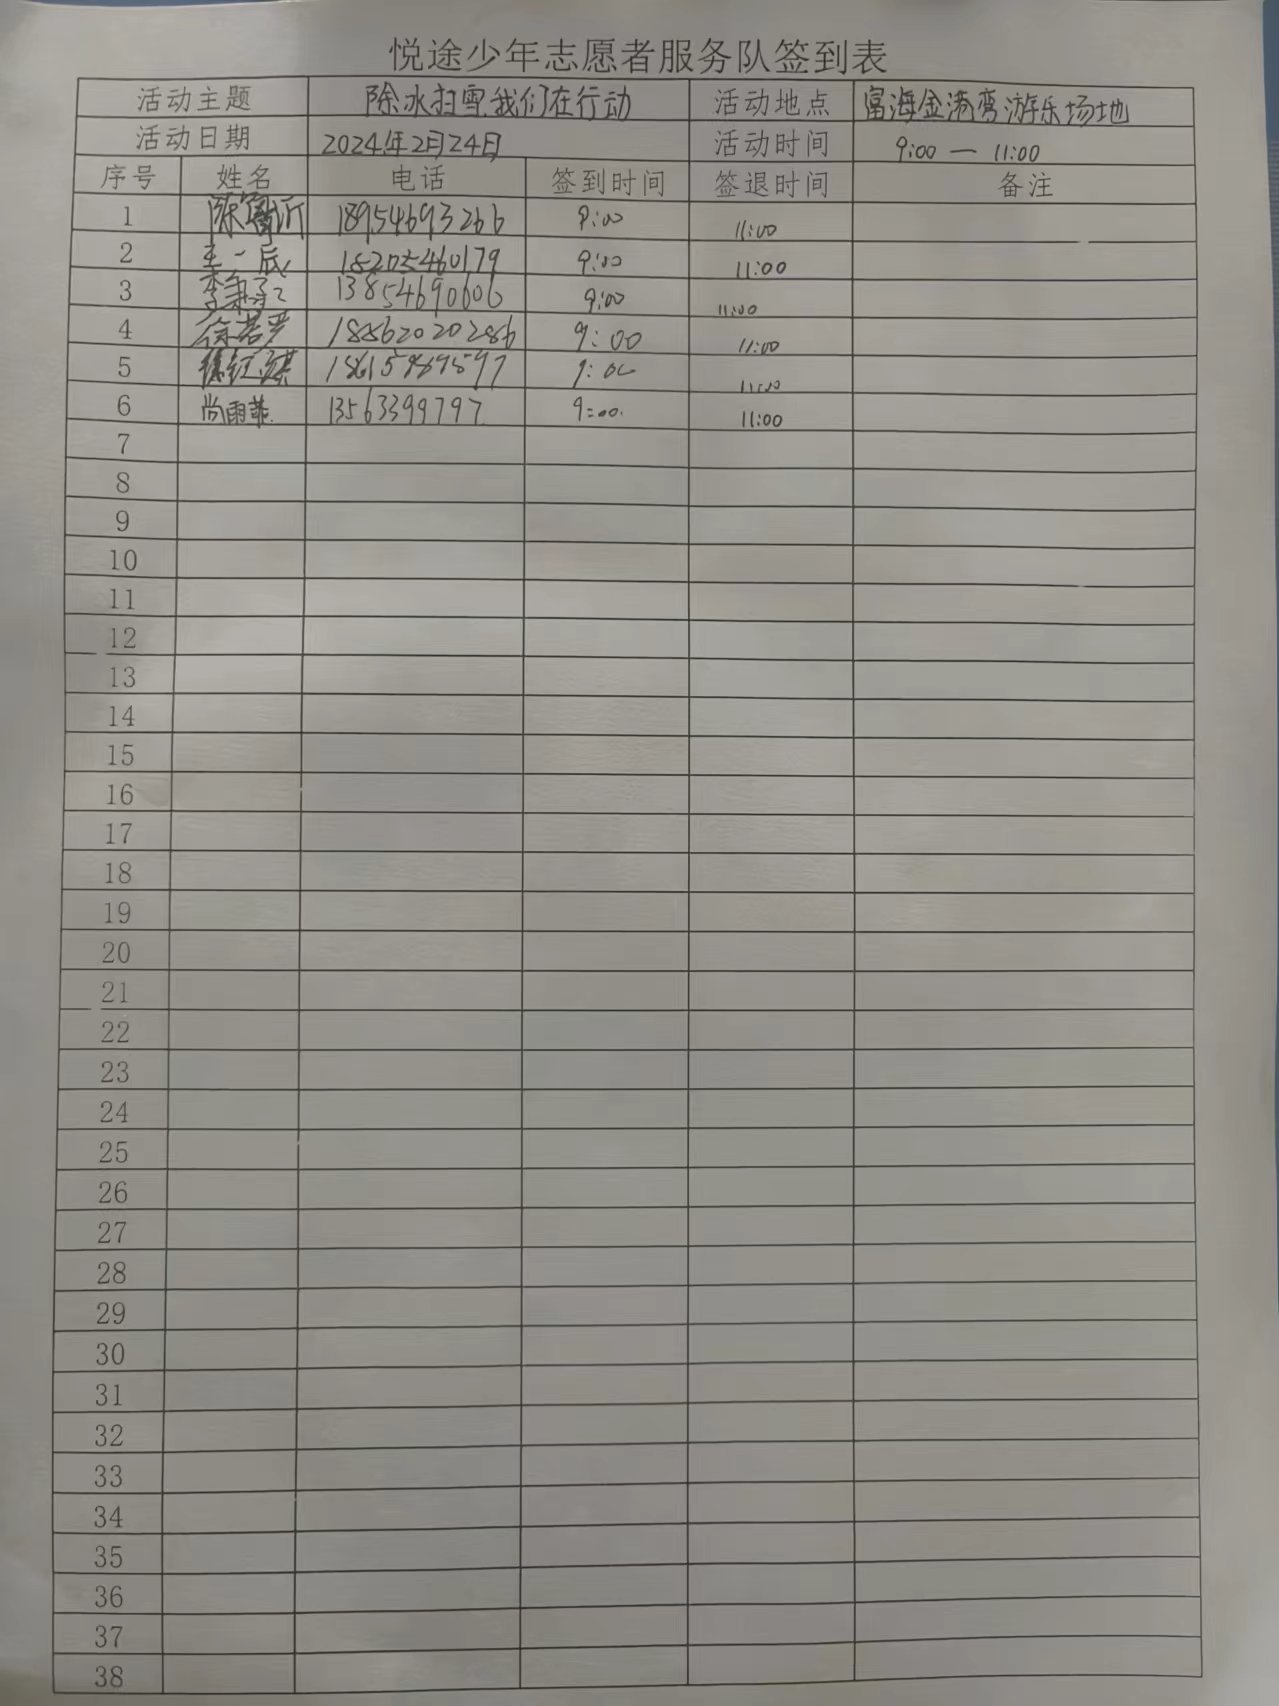 悦途少年志愿者服务队签到表
活动主题 除冰扫雪,我们在行动 活动地点 富海金港湾游乐场地
活动日期 2024年2月24日 活动时间 9:00 — 11:00
序号 姓名 电话 签到时间 签退时间 备注
1 陈 沂 18954693266 9:00 11:00
2 王一辰 18205460179 9:00 11:00
3 李 13854690606 9:00 11:00
4 徐若 18862020286 9:00 11:00
5 9:00 11:00
6 尚雨菲 13563399797 9:00 11:00
7
8
9
10
11
12
13
14
15
16
17
18
19
20
21
22
23
24
25
26
27
28
29
30
31
32
33
34
35
36
37
38